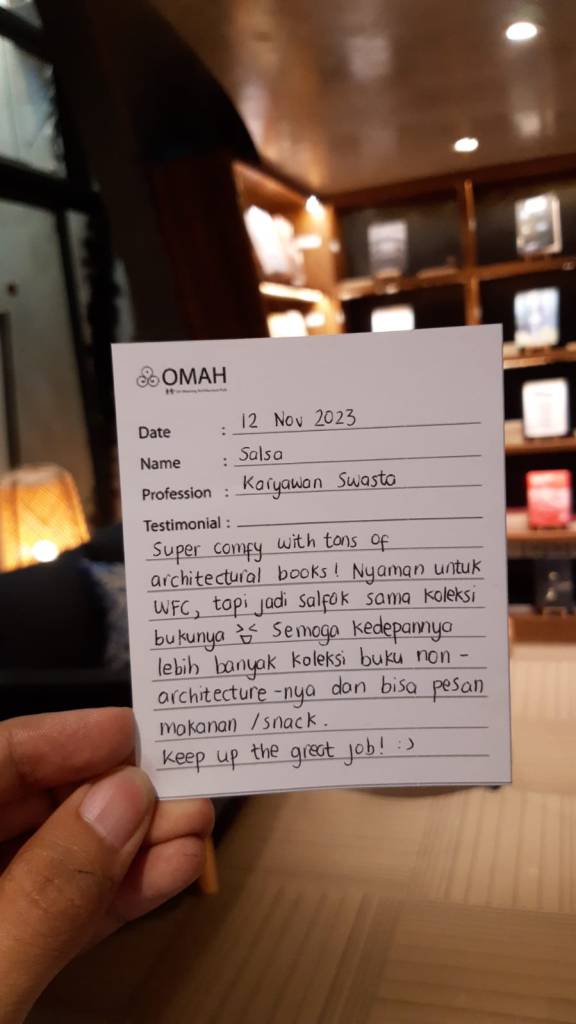 OMAH
Date : 12 Nov 2023
Name : Salsa
Profession : Karyawan Swasta
Testimonial :
Super comfy with tons of
architectural books! Nyaman untuk
WFC, topi jadi salfok sama koleksi
bukunya >< Semoga kedepannya
lebih banyak koleksi buku non -
architecture -nya dan bisa pesan
makanan /snack.
Keep up the great job! :)